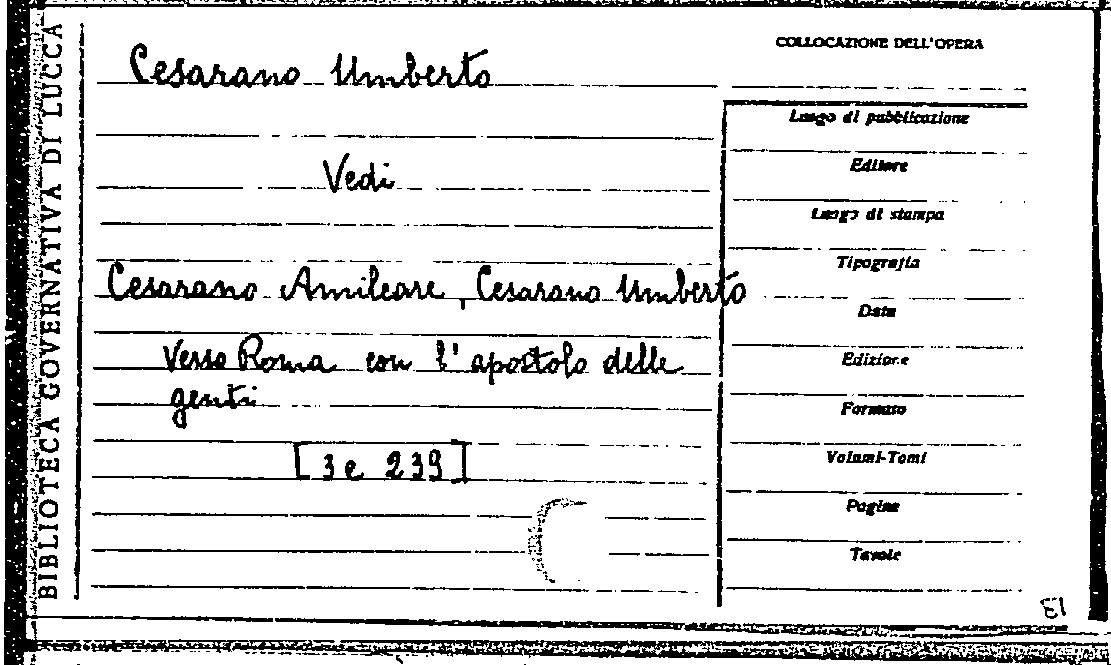 BIBLIOTECA GOVERNATIVA DI LUCCA
Cesarano Umberto
Vedi
Cesarano Amilcare, Cesarano Umberto
Verso Roma con l'apostolo delle
genti
[3e 239]
COLLOCAZIONE DELL'OPERA
Luogo di pubblicazione
Editore
Luogo di stampa
Tipografia
Data
Edizione
Formato
Volumi-Tomi
Pagine
Tavole
E1